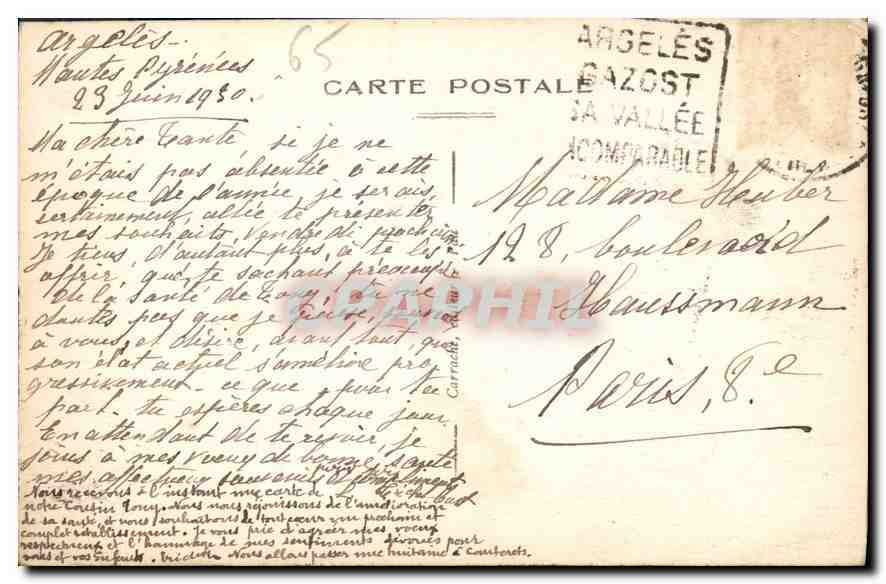 Argelès.
Hautes Pyrénées
23 Juin 1930.
65
CARTE POSTALE
ARGELÈS
GAZOST
SA VALLÉE
INCOMPARABLE
Ma chère Tante, si je ne
m'étais pas absentée à cette
époque de l'année, je serais,
certainement, allée te présenter
mes souhaits, vendredi prochain.
Je tiens, d'autant plus, à te les
offrir, que, te sachant préoccupée
de la santé de Tony, tu ne
doutes pas que je pense
à vous, et désire, avant tout, que
son état actuel s'améliore pro
gressivement - ce que pour ta
part - tu espères chaque jour
En attendant de te revoir, je
joins à mes vœux de bonne santé
mes affectueux souvenirs
Nous recevons à l'instant une carte de
notre Cousin Tony. Nous nous réjouissons de l'amélioration
de sa santé, et nous souhaitons de tout cœur un prochain et
complet rétablissement. Je vous prie d'agréer mes vœux
respectueux et l'hommage de mes sentiments dévoués pour
vous et vos Enfants. Nous allons passer une huitaine à Cauterets.
Carrache, éditeur
Madame Huber
128, boulevard
Haussmann
Paris, 8.e
CPAPHIL